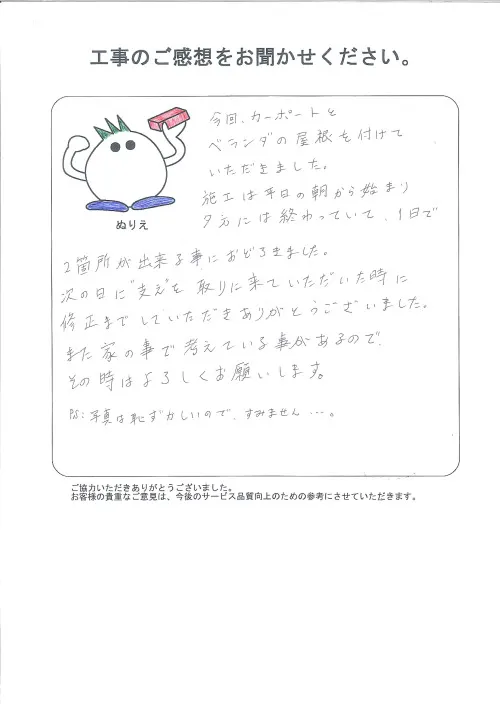 工事のご感想をお聞かせください。
今回、カーポートと
ベランダの屋根を付けて
いただきました。
施工は平日の朝から始まり
夕方には終わっていて、1日で
ぬりえ
2箇所が出来る事におどろきました。
次の日に"支え"を取りに来ていただいた時に
修正までしていただきありがとうございました。
また家の事で考えている事があるので、
その時はよろしくお願いします。
写真は恥ずかしいので、すみません…。
ご協力いただきありがとうございました。
お客様の貴重なご意見は、今後のサービス品質向上のための参考にさせていただきます。